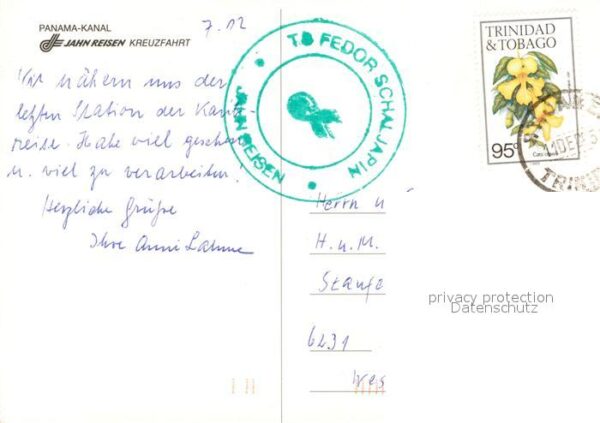 PANAMA-KANAL
JAHN REISEN KREUZFAHRT
7.12
Wir nähern uns der
letzten Station der Karib
reise. Habe viel gesehen
u. viel zu verarbeiten!
Herzliche Grüße
Ihre Anni
T.S FEDOR SCHALJAPIN
JAHN REISEN
TRINIDAD
& TOBAGO
95c
Herrn u
H. u. M.
Stange
6231
privacy protection
Datenschutz